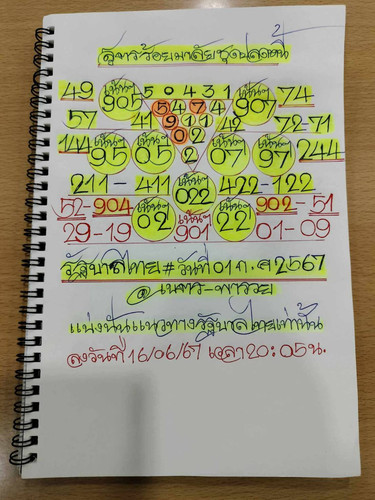 2
สูตรร้อยมาลัยชุดปลดหนี้
49 เน้นๆ 905 5 0 4 3 1 เน้นๆ 907 74
5 4 7 4
57 41 9 1 1 42 72-71
0 2
144 เน้นๆ 95 เน้นๆ 05 2 เน้นๆ 07 เน้นๆ 97 244
211-411 เน้นๆ 022 422-122
52-904 เน้นๆ 02 เน้นๆ 901 เน้นๆ 22 902-51
29-19 01-09
รัฐบาลไทย # วันที่ 01 ก.ค 2567
แบ่งปันแนวทางรัฐบาลไทยเท่านั้น
ลงวันที่ 16/06/67 เวลา 20:05 น.